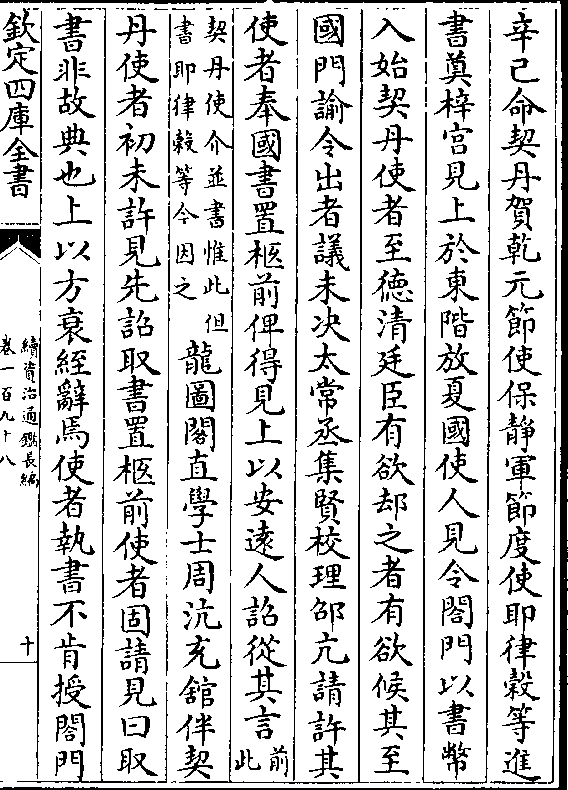 辛己命契丹賀乾元節使保静軍節度使耶律榖等進
書奠梓宫見上於東階放夏國使人見令閤門以書幣
入始契丹使者至徳清廷臣有欲却之者有欲候其至
國門諭令出者議未决太常丞集賢校理邵亢請許其
使者奉國書置柩前俾得見上以安逺人詔從其言前此
契丹使介並書惟此但
書耶律榖等今因之
龍圖閣直學士周沆充舘伴契
丹使者初未許見先詔取書置柩前使者固請見曰取
書非故典也上以方衰絰辭焉使者執書不肯授閤門
欽定四庫全書
續資治通鑑長編
卷一百九十八
十